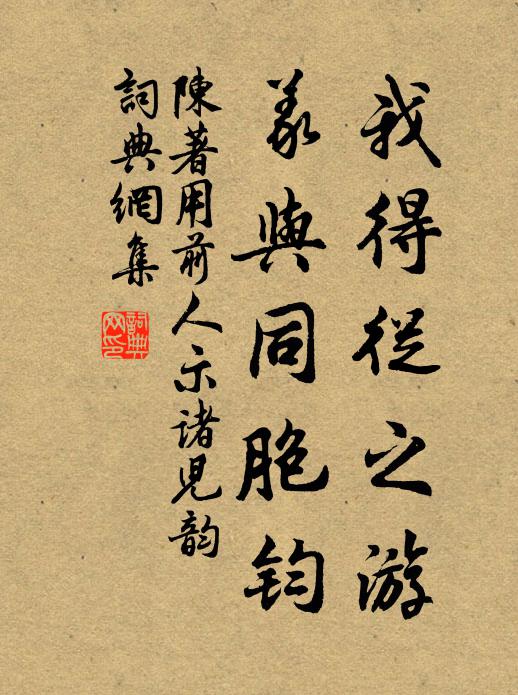 我得從之游
義與同胞鈞
陳著用前人示諸兒韵
詞典網集
詞典網印